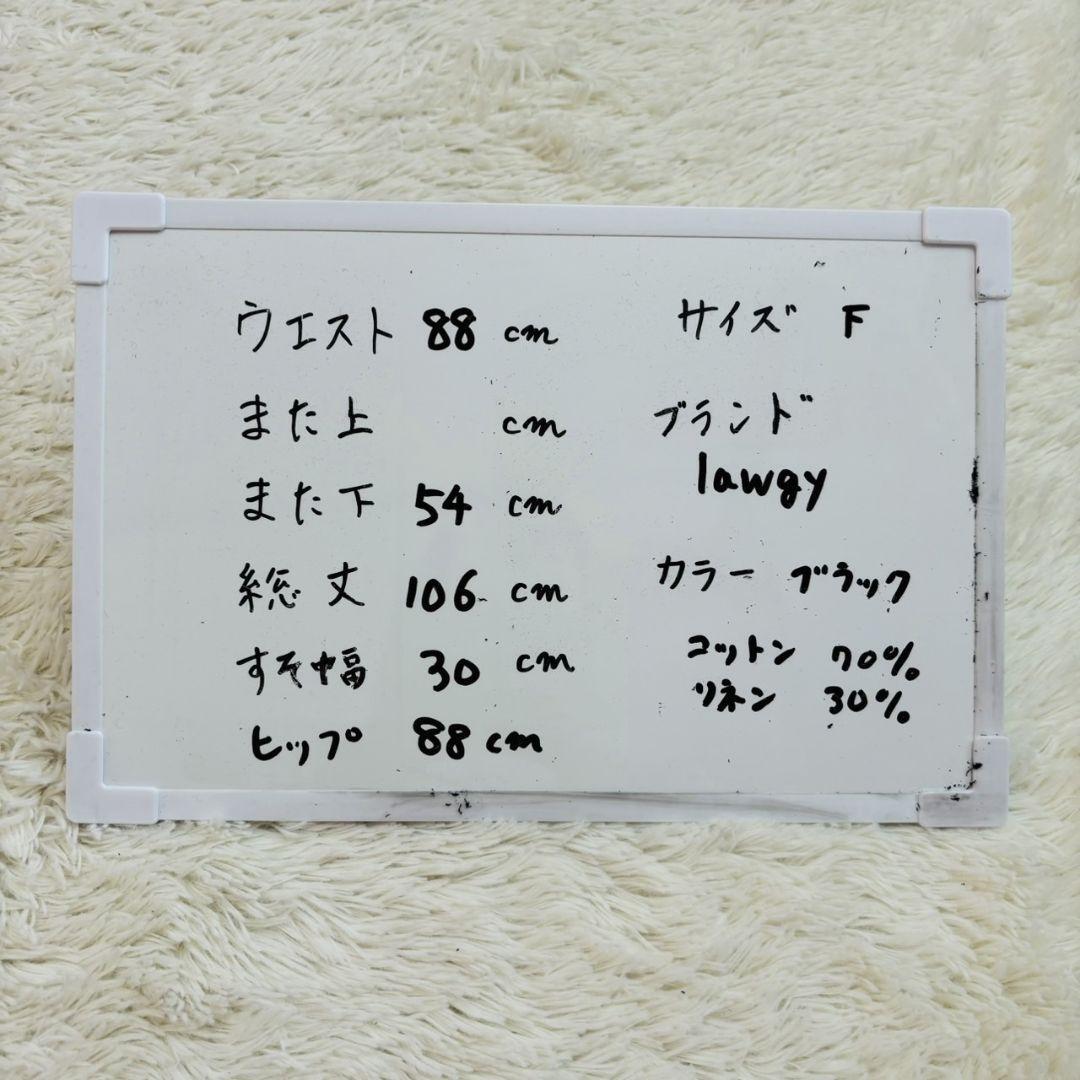 ウエスト 88 cm
また上 cm
また下 54 cm
総丈 106 cm
すそ幅 30 cm
ヒップ 88 cm
サイズ F
ブランド
lawgy
カラー ブラック
コットン 70%
リネン 30%